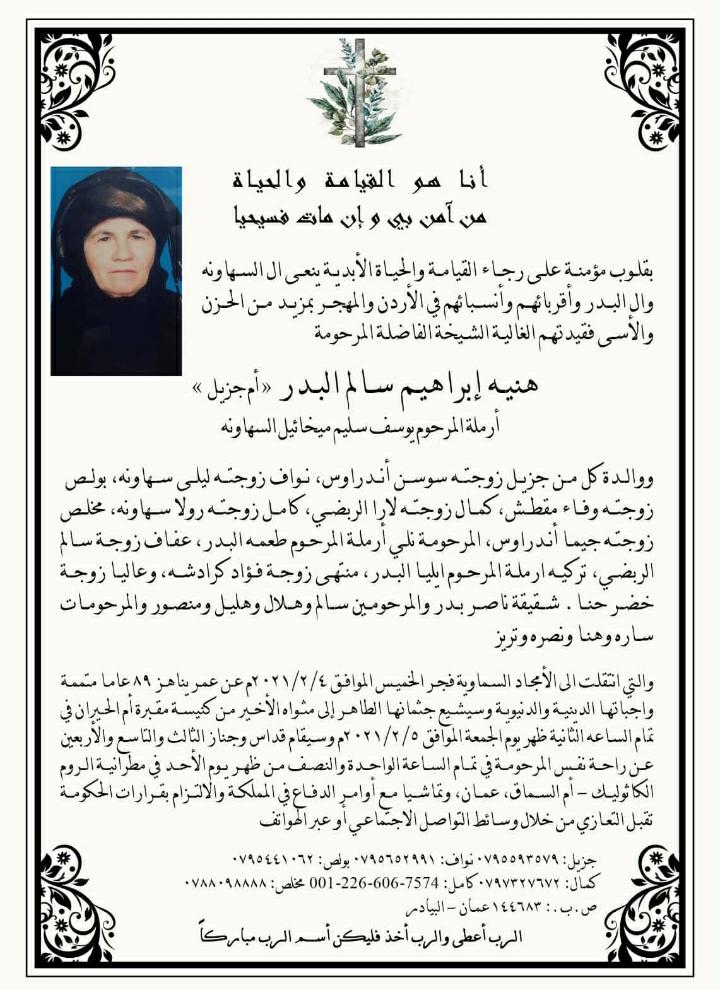 أنا هو القيامة والحياة
من آمن بي و إن مات فسيحيا
بقلوب مؤمنة على رجاء القيامة والحياة الأبدية ينعى ال السهاونه
وال البدر وأقربائهم وأنسبائهم في الأردن والمهجر بمزيد من الحزن
والأسى فقيدتهم الغالية الشيخة الفاضلة المرحومة
هنيه إبراهيم سالم البدر «أم جزيل»
أرملة المرحوم يوسف سليم ميخائيل السهاونه
ووالدة كل من جزيل زوجته سوسن أندراوس، نواف زوجته ليلى سهاونه، بولص
زوجته وفاء مقطش، كمال زوجته لارا الربضي، كامل زوجته رولا سهاونه، مخلص
زوجته جيما أندراوس، المرحومة نلي أرملة المرحوم طعمه البدر، عفاف زوجة سالم
الربضي، تركيه ارملة المرحوم ايليا البدر، منتهى زوجة فؤاد كرادشه، وعاليا زوجة
خضر حنا . شقيقة ناصر بدر والمرحومين سالم وهلال وهليل ومنصور والمرحومات
ساره وهنا ونصره وتريز
والتي انتقلت الى الأمجاد السماوية فجر الخميس الموافق ٢٠٢١/٢/٤م عن عمر يناهز ٨٩ عاما متممة
واجباتها الدينية والدنيوية وسيشيع جثمانها الطاهر إلى مثواه الأخير من كنيسة مقبرة أم الحيران في
تمام الساعه الثانية ظهر يوم الجمعة الموافق ٢٠٢١/٢/٥م وسيقام قداس وجناز الثالث والتاسع والأربعين
عن راحة نفس المرحومة في تمام الساعة الواحدة والنصف من ظهر يوم الأحد في مطرانية الروم
الكاثوليك - أم السماق، عمان، وتماشيا مع أوامر الدفاع في المملكة والالتزام بقرارات الحكومة
تقبل التعازي من خلال وسائط التواصل الاجتماعي أو عبر الهواتف
جزيل: ٠٧٩٥٥٩٣٥٧٩ نواف: ٠٧٩٥٦٥٢٩٩١ بولص: ٠٧٩٥٤٤١٠٦٢
كمال: ٠٧٩٧٣٢٧٦٧٢ كامل: 001-226-606-7574 مخلص: ٠٧٨٨٠٩٨٨٨٨
ص.ب.: ١٤٤٦٨٣ عمان - البيادر
الرب أعطى والرب أخذ فليكن أسم الرب مباركاً